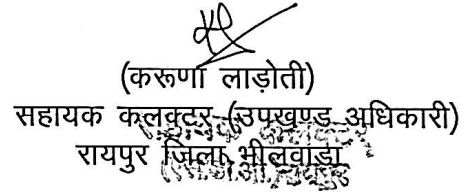 (करूणा लाड़ोती)
सहायक कलक्टर (उपखण्ड अधिकारी)
रायपुर जिला भीलवाडा